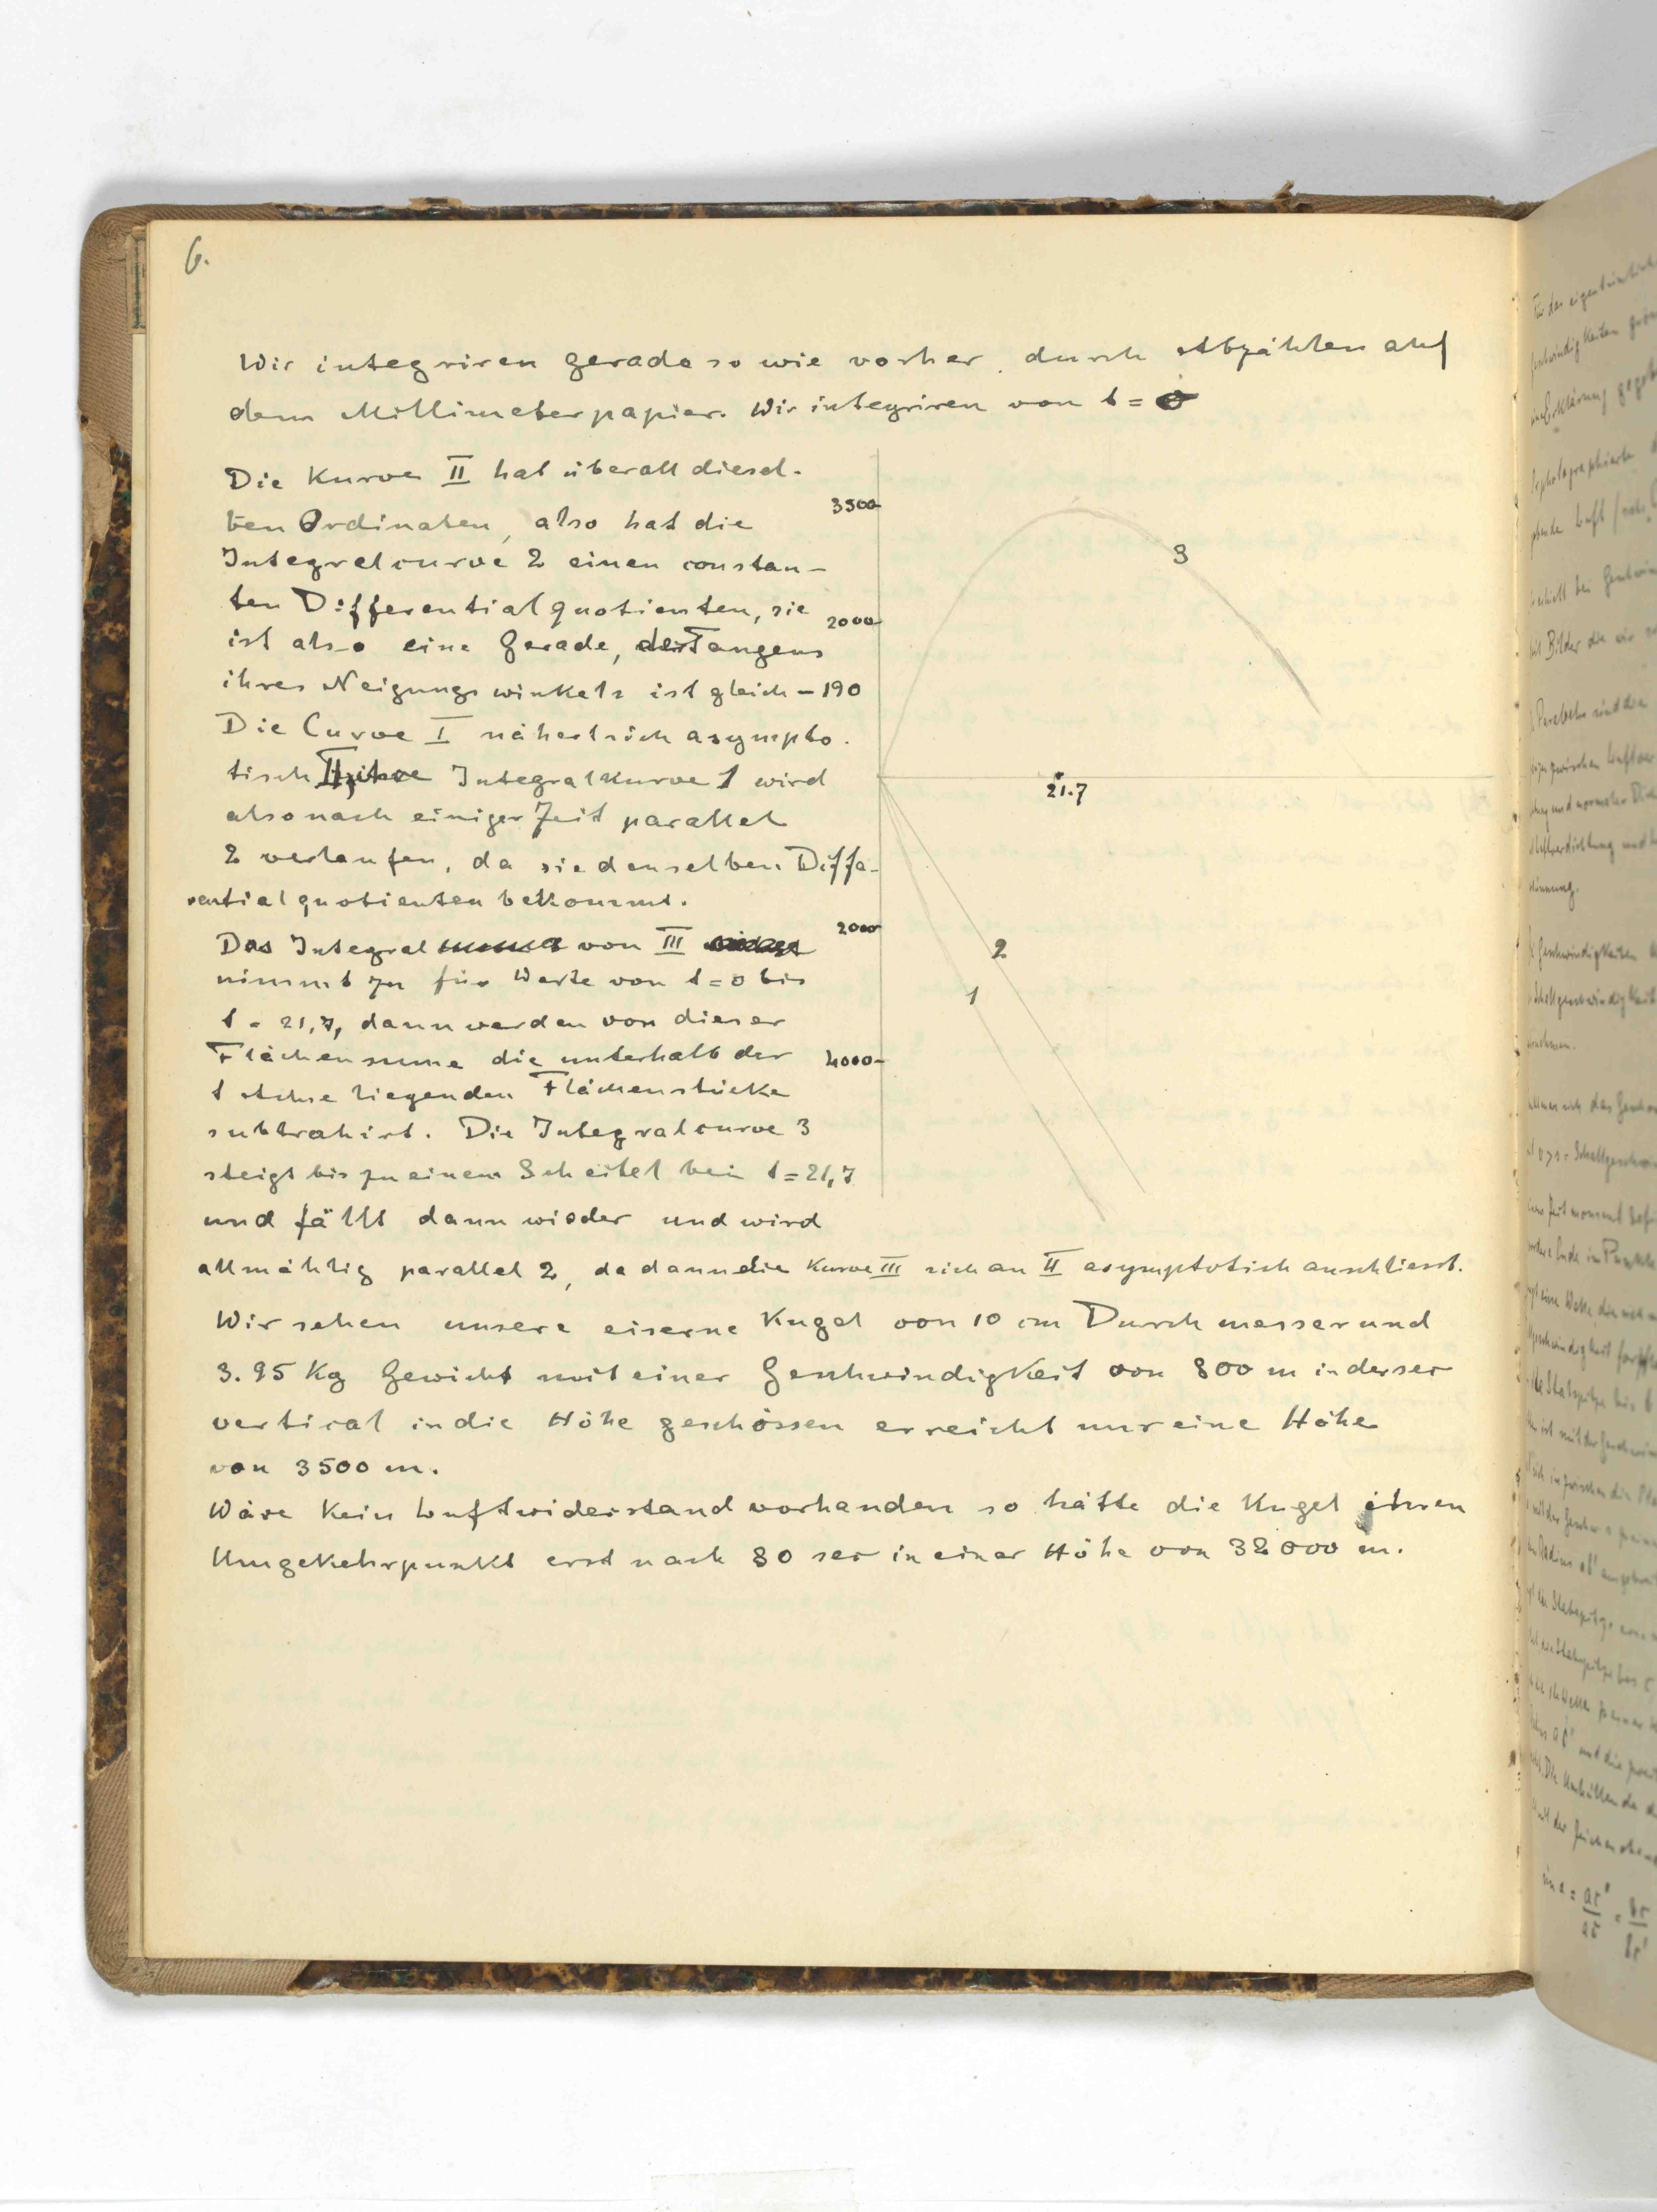 6.
Wir integriren gerade so wie vorher durch Abzählen auf
dem Millimeterpapier. Wir integriren von t = 0
Die Kurve II hat überall diesel-
ben Ordinaten, also hat die
Integralcurve 2 einen constan-
ten Differentialquotienten, sie
ist also eine Gerade, der Tangens
ihres Neigungswinkels ist gleich - 190
Die Curve I nähert sich asympto-
tisch II, ihre Integralkurve 1 wird
also nach einiger Zeit parallel
2 verlaufen, da sie denselben Diffe-
rentialquotienten bekommt.
Das Integral von III
nimmt zu für Werte von t = 0 bis
t = 21,7, dann werden von dieser
Flächensumme die unterhalb der
t Achse liegenden Flächenstücke
subtrahirt. Die Integralcurve 3
steigt bis zu einem Scheitel bei t = 21,7
und fällt dann wieder und wird
allmählig parallel 2, da dann die Kurve III sich an II asymptotisch anschliesst.
3500
2000
2000
4000
3
21.7
2
1
Wir sehen unsere eiserne Kugel von 10 cm Durchmesser und
3.95 Kg Gewicht mit einer Geschwindigkeit von 800 m in der sec
vertical in die Höhe geschossen erreicht nur eine Höhe
von 3500 m.
Wäre kein Luftwiderstand vorhanden so hätte die Kugel ihren
Umgekehrpunkt erst nach 80 sec in einer Höhe von 32000 m.